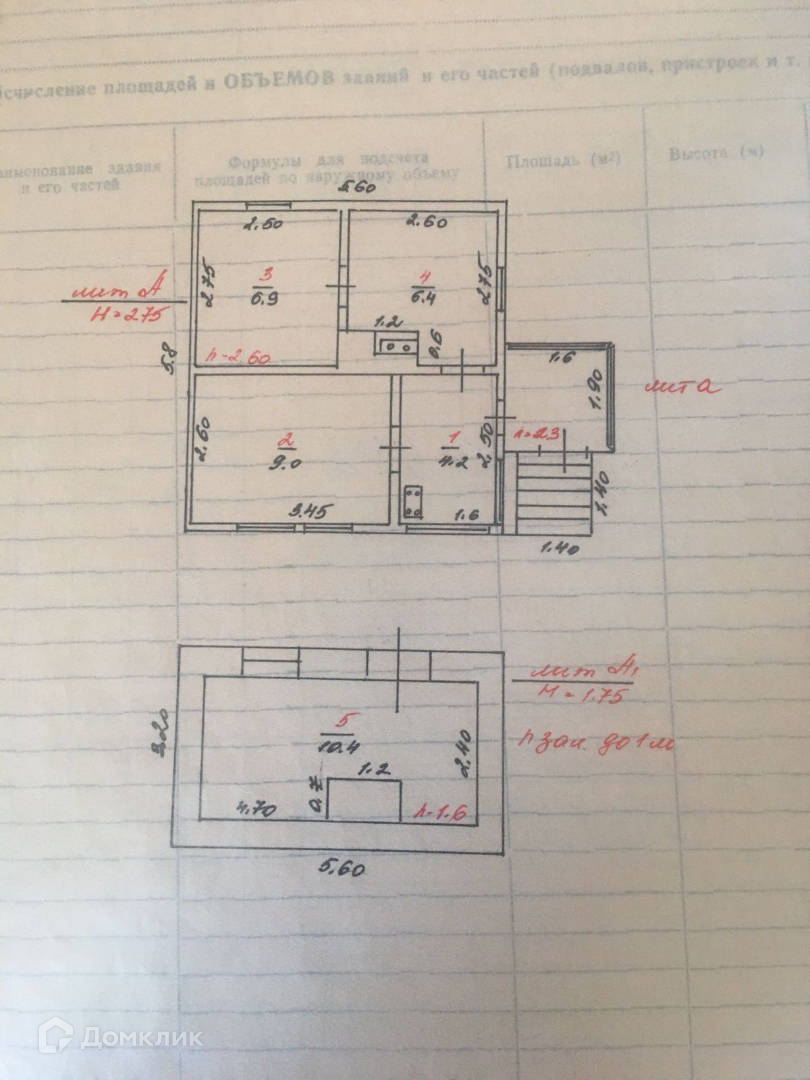 исчисление площадей и ОБЪЕМОВ зданий и его частей (подвалов, пристроек и т.
наименование здания
и его частей
Формулы для подсчета
площадей по наружному объему
Площадь (м²)
Высота (м)
5.60
2.50
2.60
2.75
3
6.9
4
6.4
2.75
лит А
Н=2.75
1.2
0.6
h-2.60
5.8
1.6
1.90
лит а
h=2.3
2.60
2
9.0
1
4.2
2.50
3.45
1.6
1.40
1.40
лит А₁
Н=1.75
3.20
5
10.4
2.40
h зал. до 1 м
1.2
0.7
4.70
h-1.6
5.60
Домклик